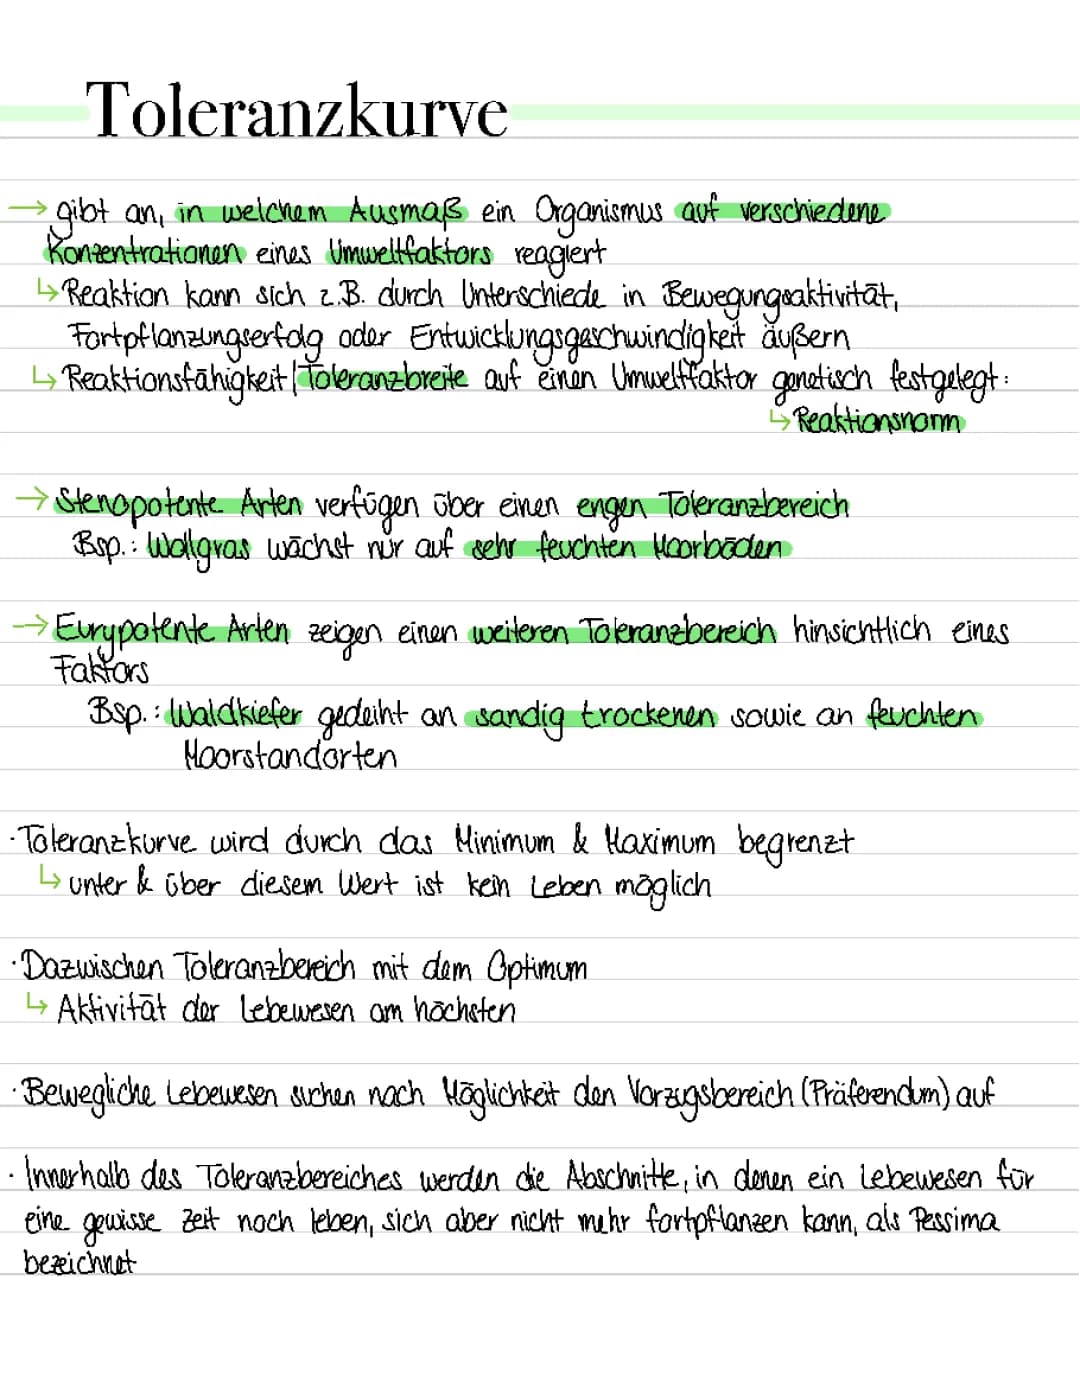 Toleranzkurve
→ gibt an, in welchem Ausmaß ein Organismus auf verschiedene
Konzentrationen eines Umweltfaktors reagiert
↳ Reaktion kann sich z.B. durch Unterschiede in Bewegungsaktivität,
Fortpflanzungserfolg oder Entwicklungsgeschwindigkeit äußern
↳ Reaktionsfähigkeit | Toleranzbreite auf einen Umweltfaktor genetisch festgelegt:
↳ Reaktionsnorm
→ Stenopotente Arten verfügen über einen engen Toleranzbereich
Bsp.: Wollgras wächst nur auf sehr feuchten Moorböden
→ Eurypotente Arten zeigen einen weiteren Toleranzbereich hinsichtlich eines
Faktors
Bsp.: Waldkiefer gedeiht an sandig trockenen sowie an feuchten
Moorstandorten
· Toleranzkurve wird durch das Minimum & Maximum begrenzt
↳ unter & über diesem Wert ist kein Leben möglich
· Dazwischen Toleranzbereich mit dem Optimum
↳ Aktivität der Lebewesen am höchsten
· Bewegliche Lebewesen suchen nach Möglichkeit den Vorzugsbereich (Präferendum) auf
· Innerhalb des Toleranzbereiches werden die Abschnitte, in denen ein Lebewesen für
eine gewisse Zeit noch leben, sich aber nicht mehr fortpflanzen kann, als Pessima
bezeichnet